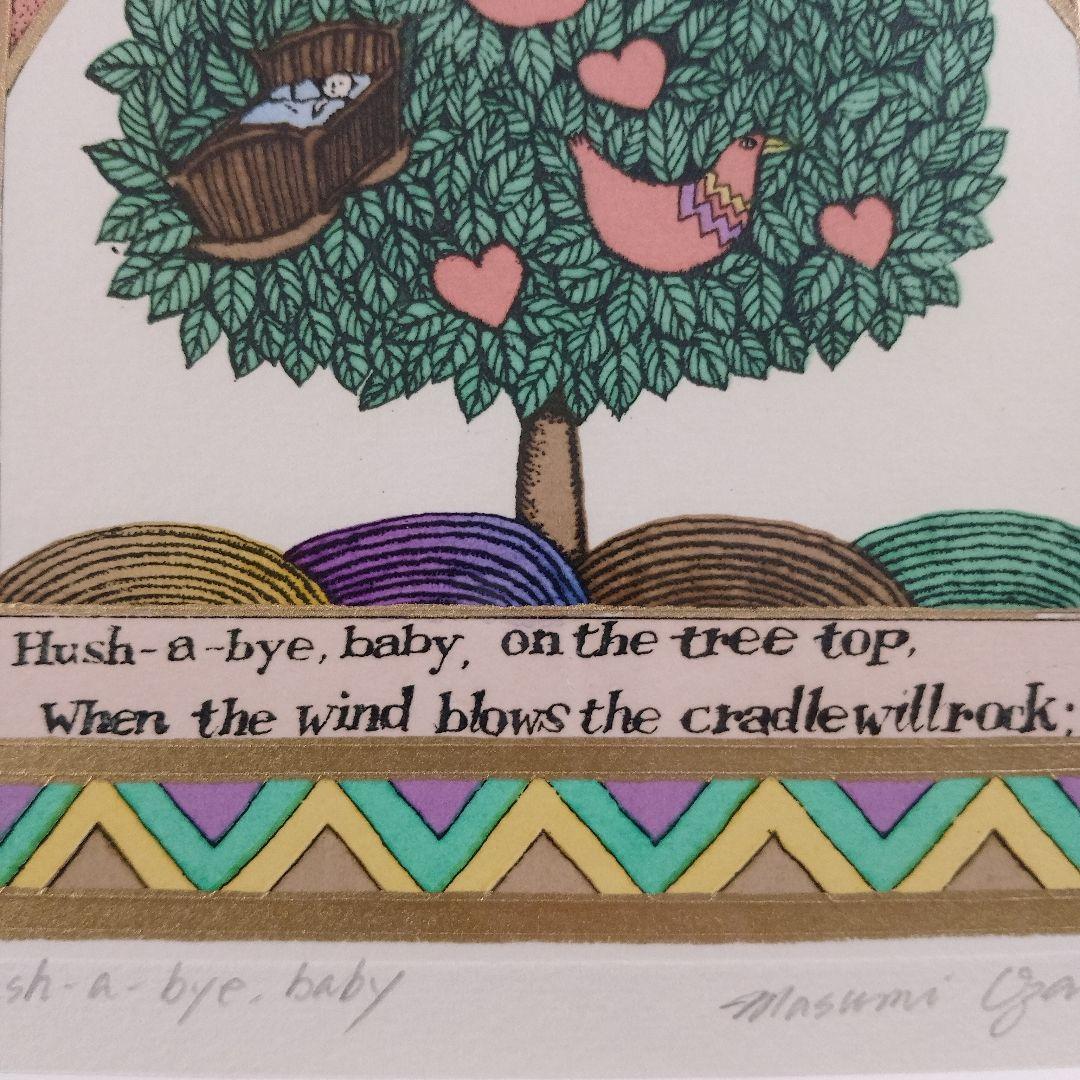 Hush-a-bye, baby, on the tree top,
When the wind blows the cradle will rock;
sh-a-bye, baby
Masumi